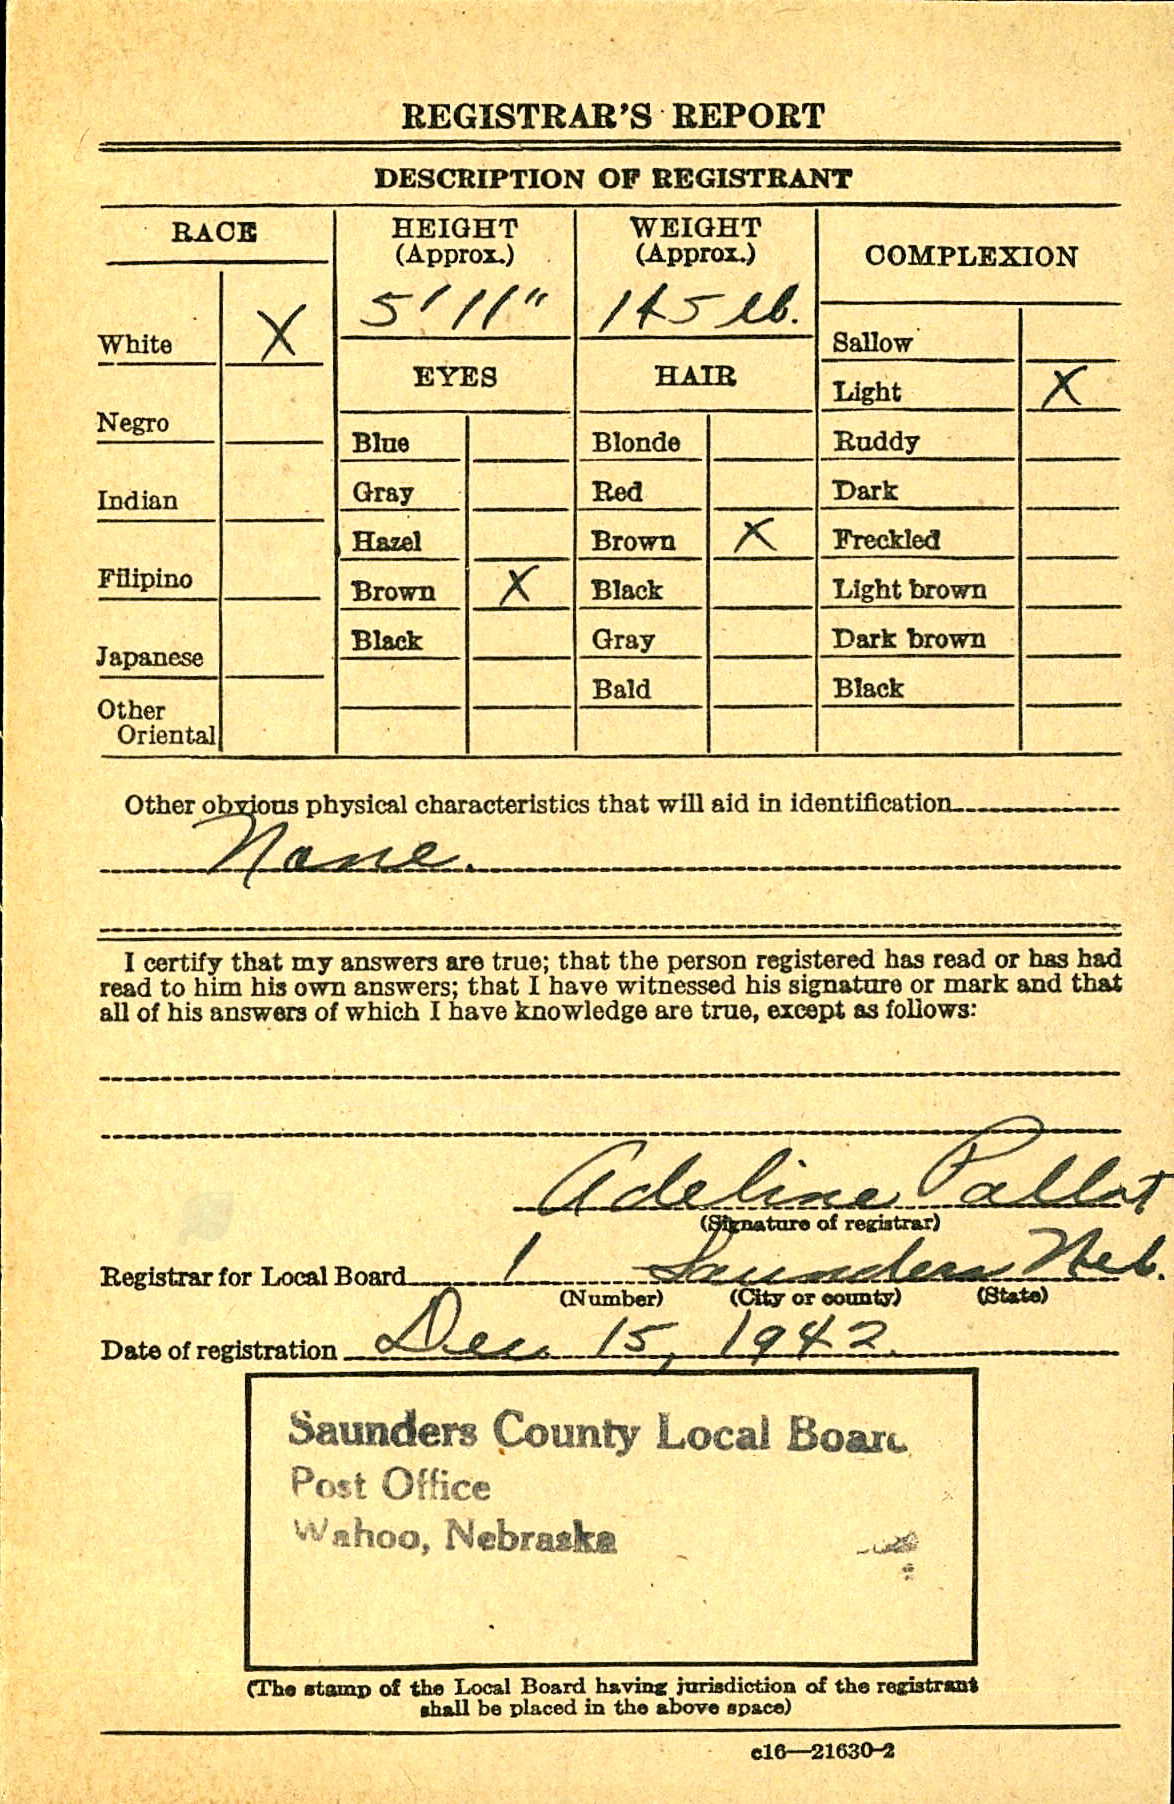 REGISTRAR'S REPORT
DESCRIPTION OF REGISTRANT
RACE
HEIGHT
(Approx.)
WEIGHT
(Approx.)
COMPLEXION
5' 11"
145 lb.
White X
Negro
Indian
Filipino
Japanese
Other
Oriental
EYES
Blue
Gray
Hazel
Brown X
Black
HAIR
Blonde
Red
Brown X
Black
Gray
Bald
Sallow
Light X
Ruddy
Dark
Freckled
Light brown
Dark brown
Black
Other obvious physical characteristics that will aid in identification
None.
I certify that my answers are true; that the person registered has read or has had
read to him his own answers; that I have witnessed his signature or mark and that
all of his answers of which I have knowledge are true, except as follows:
Adeline Pallat
(Signature of registrar)
Registrar for Local Board 1 Saunders Neb.
(Number) (City or county) (State)
Date of registration Dec. 15, 1942.
Saunders County Local Board
Post Office
Wahoo, Nebraska
(The stamp of the Local Board having jurisdiction of the registrant
shall be placed in the above space)
c16—21630-2